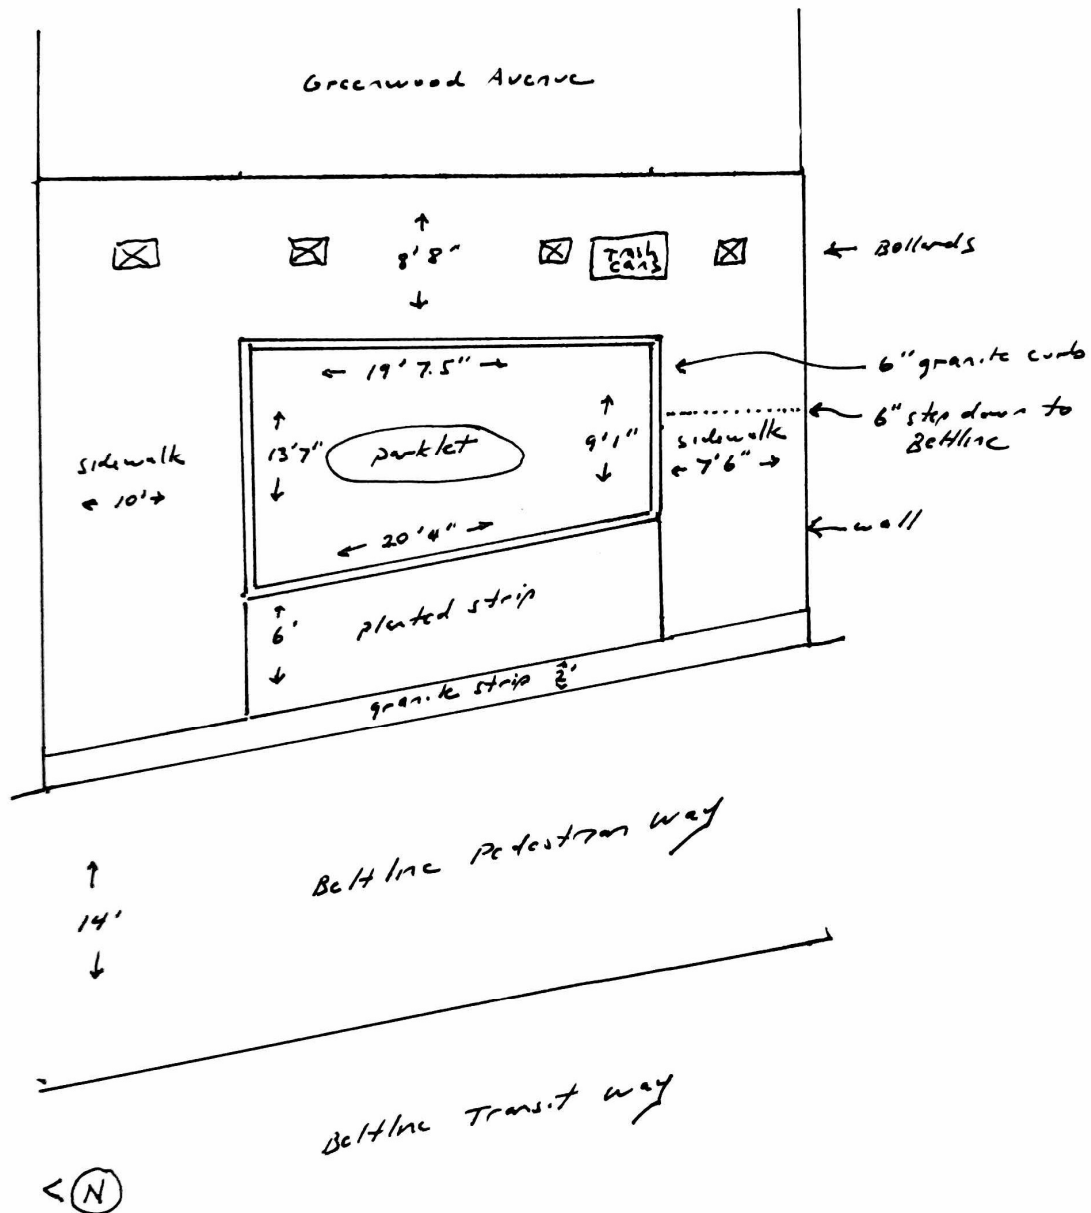 Greenwood Avenue
8' 8"
Trash
cans
← Bollards
← 19' 7.5" →
6" granite curb
6" step down to
Beltline
13' 7"
parklet
9' 1"
sidewalk
← 7' 6" →
sidewalk
← 10' →
← 20' 4" →
wall
6'
planted strip
granite strip 2'
Beltline Pedestrian Way
14'
Beltline Transit Way
< N